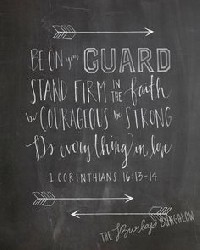 BE ON your GUARD
STAND FIRM IN THE faith
be COURAGEOUS be STRONG
Do everything in love
1 CORINTHIANS 16:13-14
THE Burlap BUNGALOW